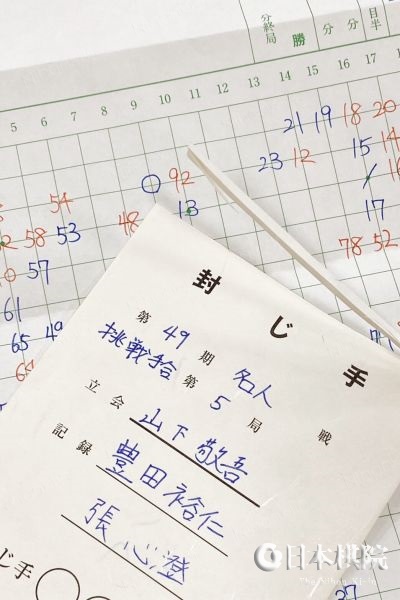 終局 勝 分 分 目半
5 6 7 8 9 10 11 12 13 14 15 16 17
21 19 18 20
23 12 15 14
92 16
54 13 17
58 53 48 78 52
57
61
65 49
封じ手
第49期 名人戦
挑戦手合 第5局
立会 山下敬吾
記録 豊田裕仁
張心澄
じ手
日本棋院
37